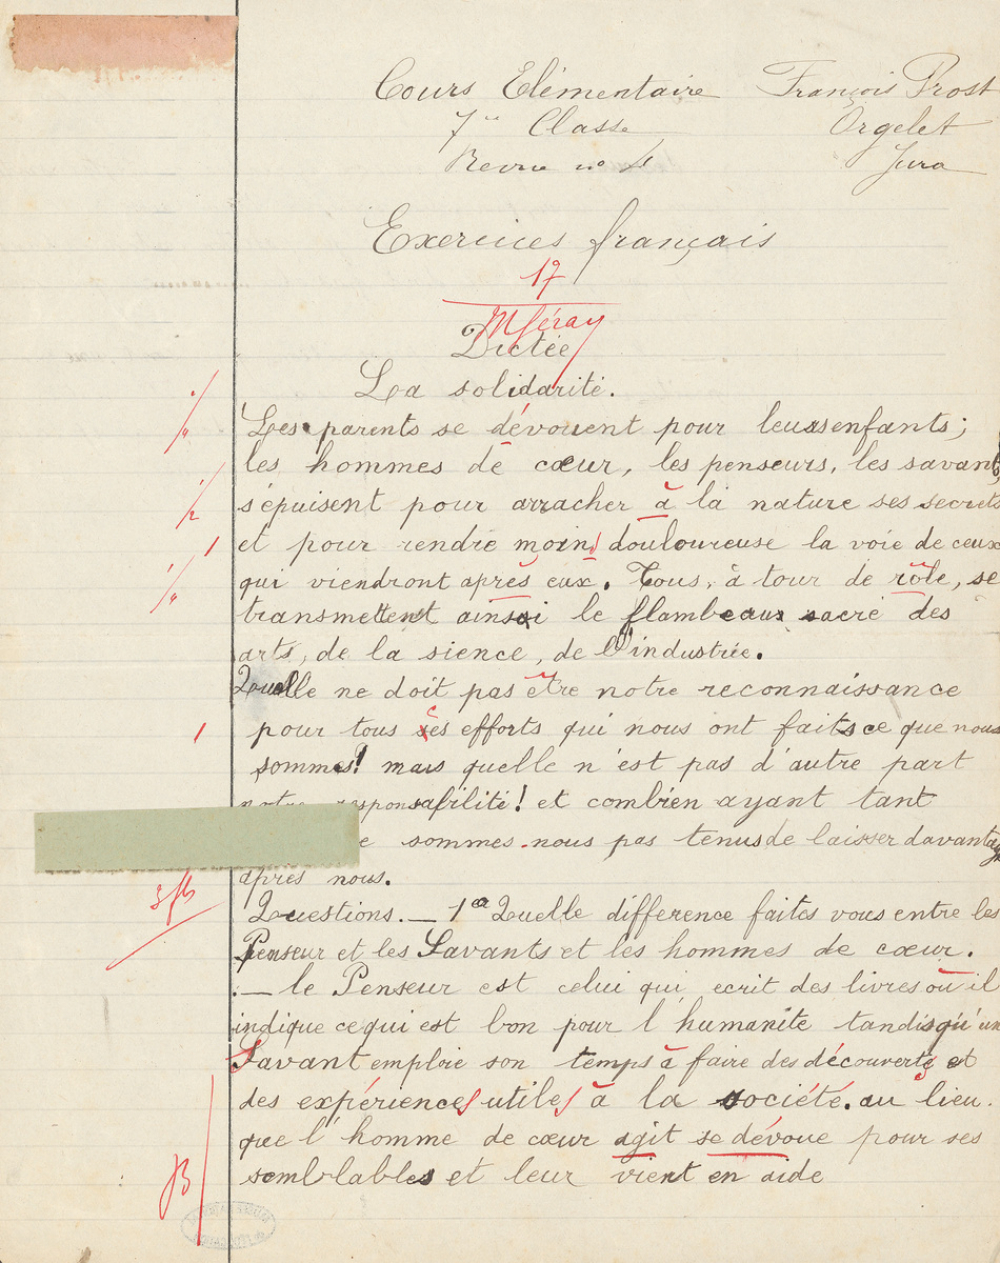 Cours Elémentaire François Prost
7e Classe Orgelet
Revue no 4 Jura
Exercices français
17
Dictée
La solidarité.
Les parents se dévouent pour leurs enfants;
les hommes de cœur, les penseurs, les savants
s'épuisent pour arracher à la nature ses secrets
et pour rendre moins douloureuse la voie de ceux
qui viendront après eux. Tous, à tour de rôle, se
transmettent ainsi le flambeaux sacré des
arts, de la sience, de l'industrée.
Quelle ne doit pas être notre reconnaissance
pour tous ces efforts qui nous ont faits ce que nous
sommes! mais quelle n'est pas d'autre part
notre responsabilité! et combien ayant tant
e sommes-nous pas tenus de laisser davantage
après nous.
Questions. — 1er Quelle difference faites vous entre les
Penseur et les Savants et les hommes de cœur.
. — le Penseur est celui qui ecrit des livres où il
indique ce qui est bon pour l'humanité tandis qu'un
Savant emploie son temps à faire des découverts et
des expériences utiles à la société. au lieu.
que l'homme de cœur agit se dévoue pour ses
semblables et leur vient en aide
3 fb
B